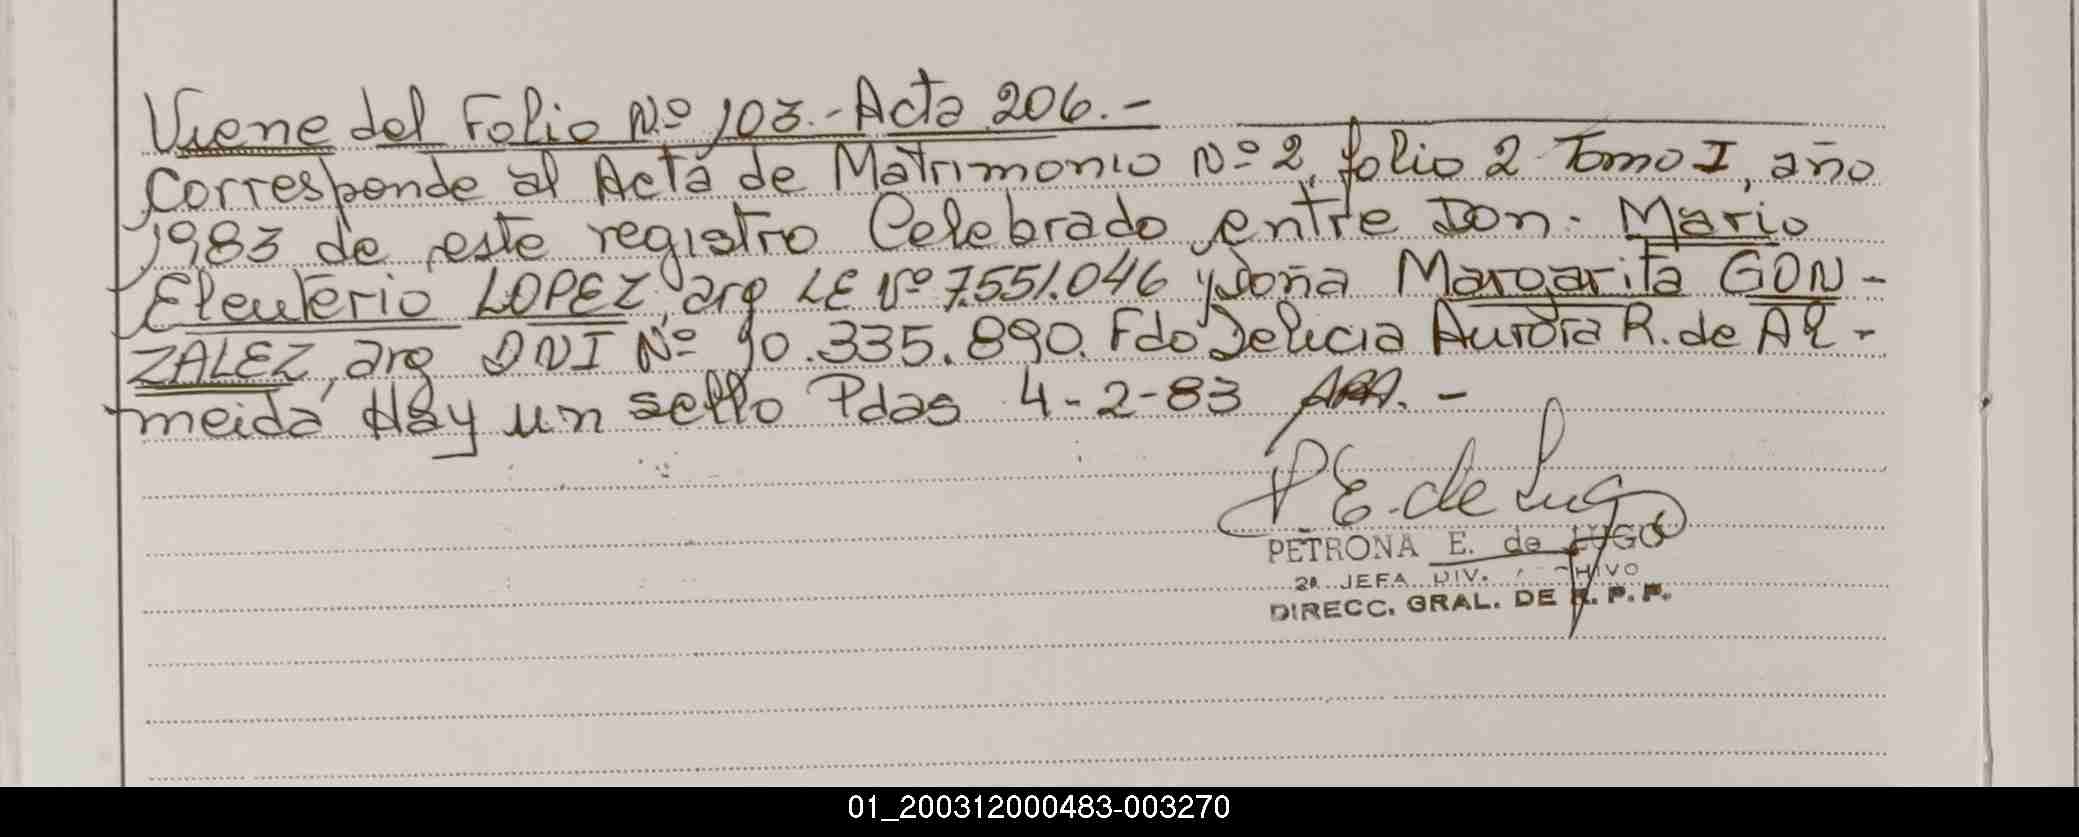 Viene del Folio Nº 103.- Acta 206.-
Corresponde al Acta de Matrimonio Nº 2, folio 2 Tomo I, año
1983 de este registro Celebrado entre Don. Mario
Eleuterio LOPEZ, arg LE Nº 7.551.046 y Doña Margarita GON-
ZALEZ, arg DNI Nº 10.335.890. Fdo Delicia Aurora R. de Al-
meida Hay un sello Pdas 4-2-83 .-
P E. de Lugo
PETRONA E. de LUGO
2a JEFA DIV.
DIRECC. GRAL. DE R. P. P.
01_200312000483-003270